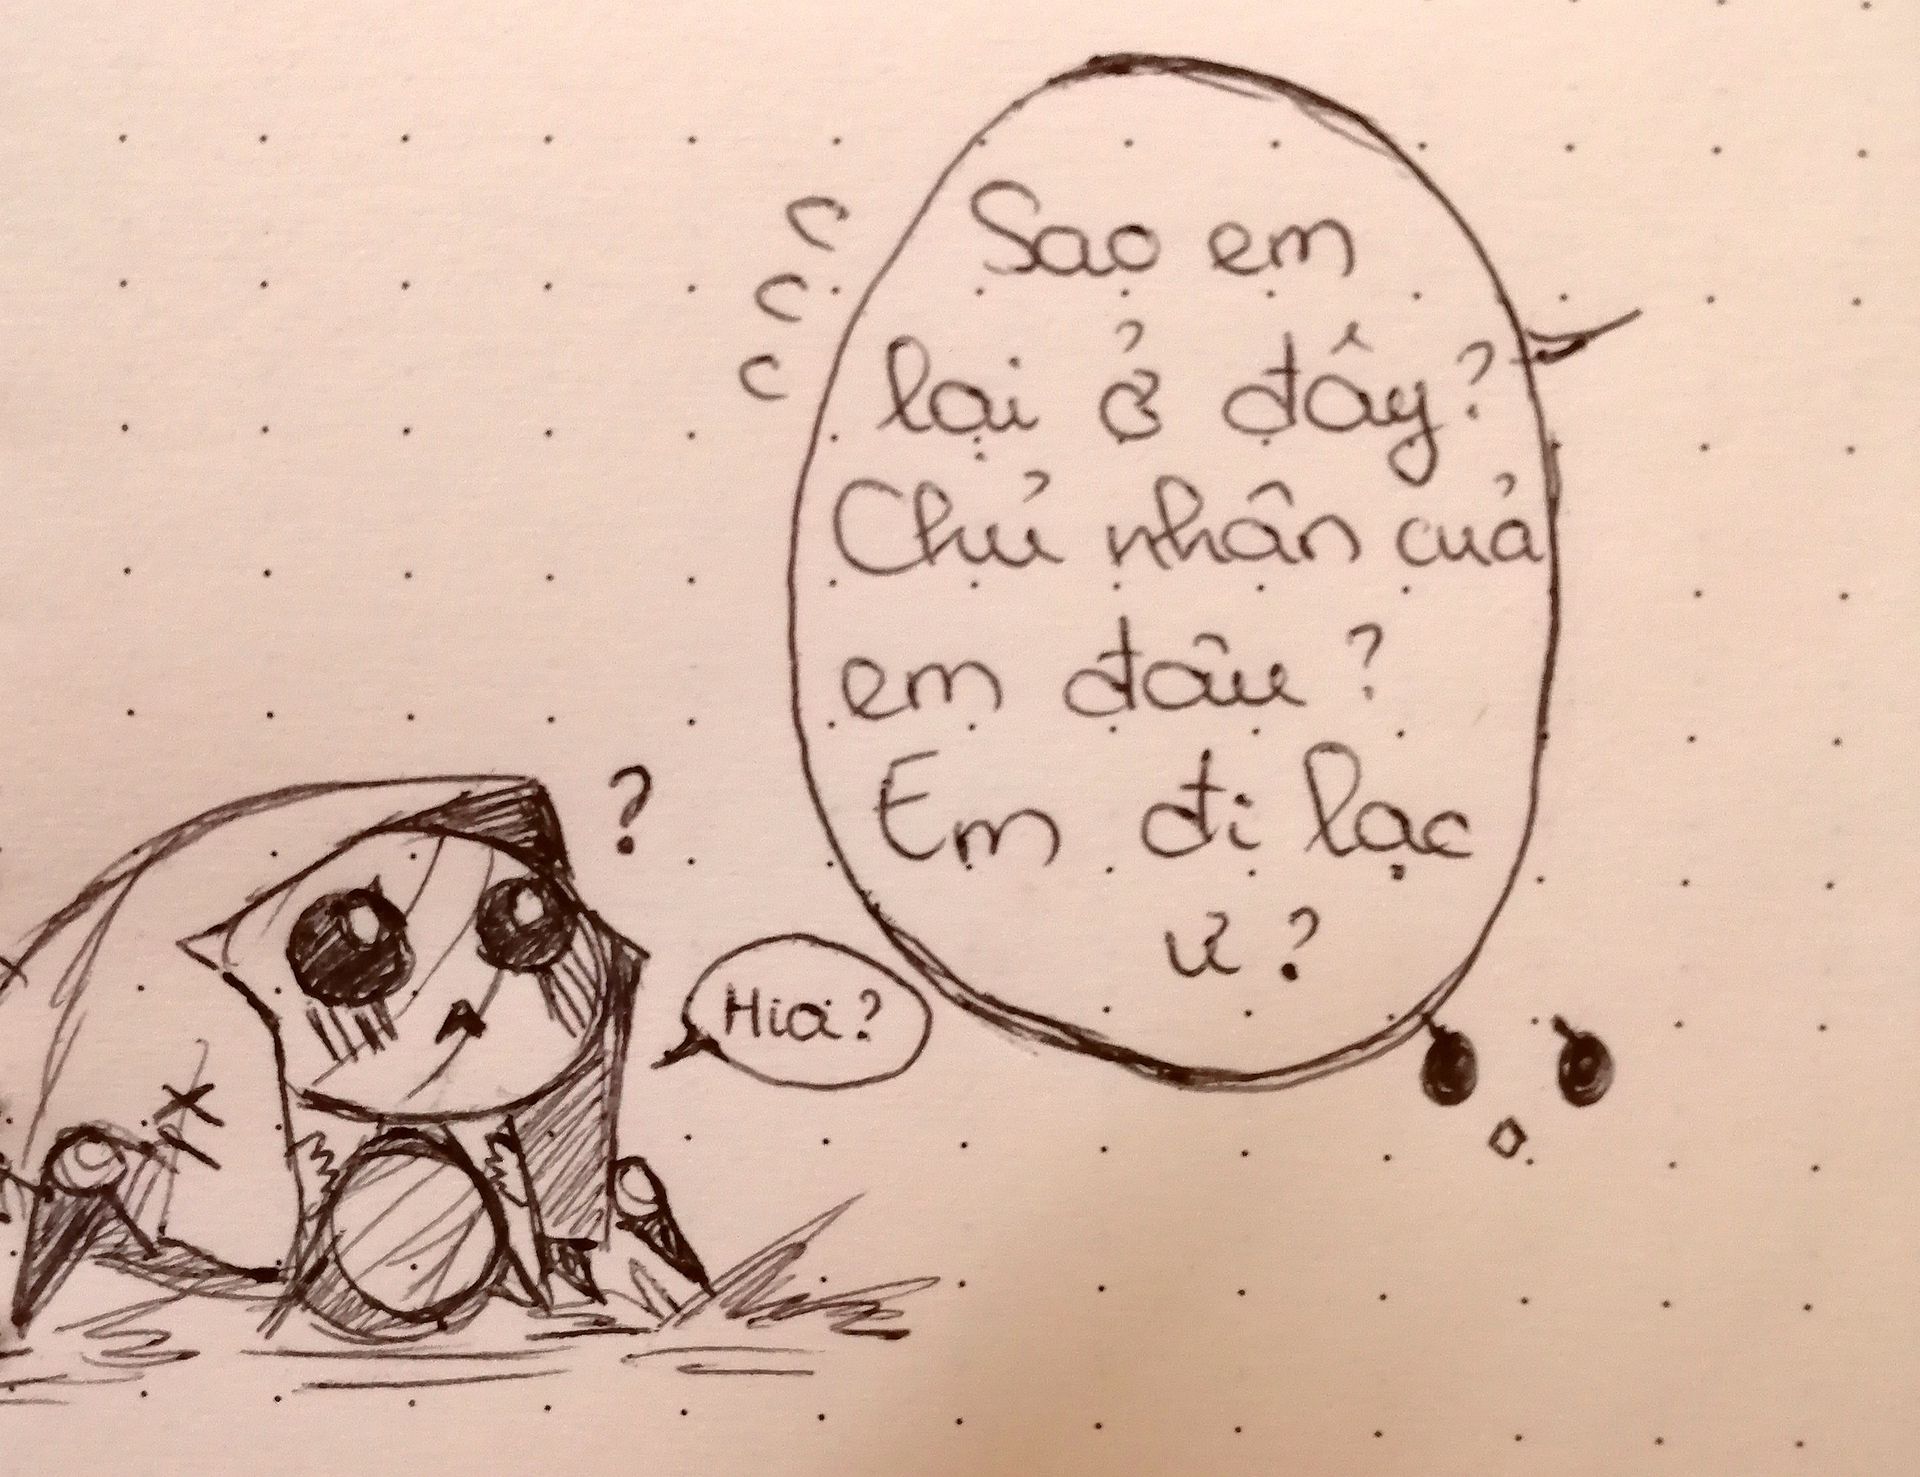 Sao em
lại ở đây?
Chủ nhân của
em đâu?
Em đi lạc
ư?
?
Hia?